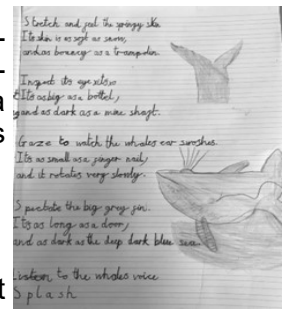 Stretch and feel the springy skin
Its skin is as soft as snow,
and as bouncy as a trampolin.
Inspect its eye
Its as big as a bottel,
and as dark as a mine shaft.
Gaze to watch the whales ear swoshes.
Its as small as a finger nail,
and it rotates very slowly.
Spectate the big grey fin.
Its as long as a door,
and as dark as the deep dark blue sea.
Listen to the whales voice
Splash